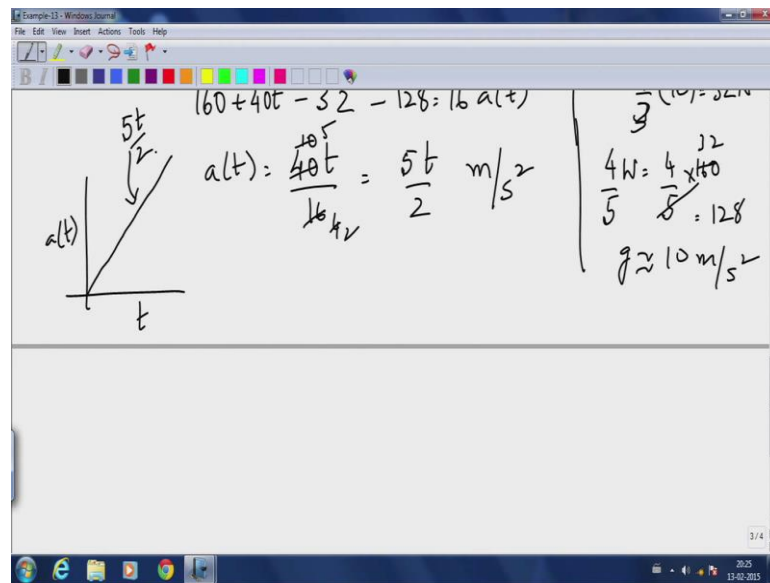 Example-13 - Windows Journal
File Edit View Insert Actions Tools Help
B I
160 + 40t - 32 - 128 = 16 a(t)
(10) = 32N
3
5t
2
10 5
a(t) = 40t = 5t m/s²
16 4 2 2
a(t)
t
32
4 W = 4 × 160
5 5 = 128
g ≈ 10 m/s²
3/4
20:25
13-02-2015